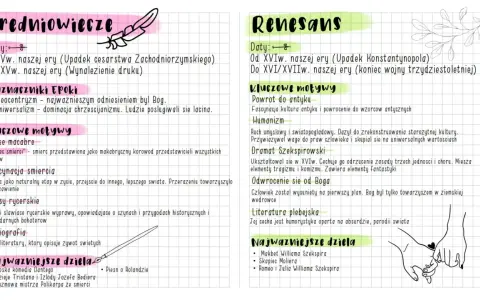 redniowiecze
Daty:
Vw. naszej ery (Upadek cesarstwa Zachodniorzymskiego)
XVw. naszej ery (Wynalezienie druku)
znaczniki Epoki
eocentryzm - najważniejszym odniesieniem był Bóg.
niwersalizm - dominacja chrześcijanizmu. Ludzie posługiwali się łaciną.
uczowe motywy
se macabre
ec śmierci" - śmierć przedstawiona jako makabryczny korowód przedstawicieli wszystkich
w
cynacja śmiercią
ta jako naturalny etap w życiu, przejście do innego, lepszego świata. Przerażenie towarzyszyło
owienie
sy rycerskie
i sławiące rycerskie wyprawy, opowiadające o czynach i przygodach historycznych i
ndarnych bohaterów
iografia
literatury, który opisuje żywot świętych
ajważniejsze dzieła
oska komedia Dantego
zieje Tristana i Izoldy Josefa Bediera
ozmowa mistrza Polikarpa ze śmiercią
• Pieśń o Rolandzie
Renesans
Daty:
Od XVw. naszej ery (Upadek Konstantynopola)
Do XVI/XVIIw. naszej ery (koniec wojny trzydziestoletniej)
Kluczowe motywy
Powrót do antyku
Fascynacja kulturą antyku i powrócenie do wzorców antycznych
Humanizm
Ruch umysłowy i światopoglądowy. Dążył do zrekonstruowania starożytnej kultury.
Przywiązywał wagę do praw człowieka i skupiał się na uniwersalnych wartościach
Dramat Szekspirowski
Ukształtował się w XVIw. Cechuje go odrzucenie zasady trzech jedności i chóru. Miesza
elementy tragizmu i komizmu. Zawiera elementy fantastyki
Odwrócenie się od Boga
Człowiek został wysunięty na pierwszy plan. Bóg był tylko towarzyszem w ziemskiej
wędrówce
Literatura plebejska
Jej cechą jest humorystyka oparta na absurdzie, parodii świata
Najważniejsze dzieła
• Makbet Williama Szekspira
• Skąpiec Moliera
• Romeo i Julia Williama Szekspira